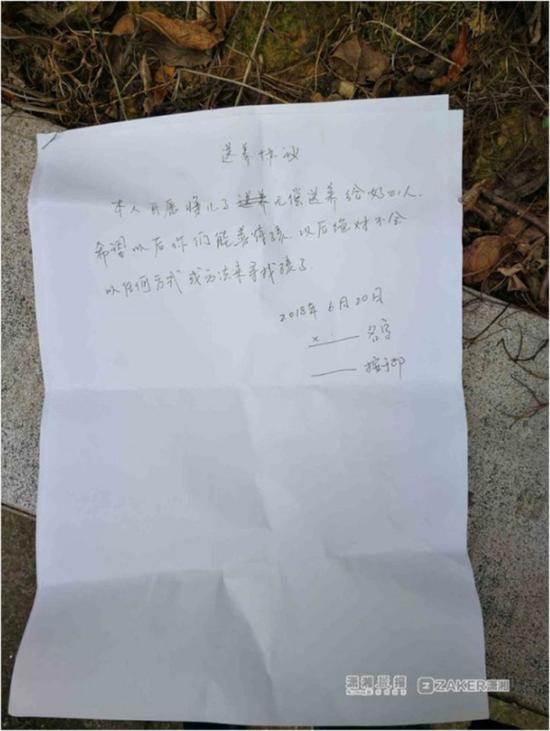 送养协议
本人自愿将儿子送养无偿送养给好心人.
希望以后你们能善待孩.以后绝对不会
以任何方式或方法来寻找孩子.
2018年6月20日
x. 名字
按手印
潇湘晨报
ZAKER潇湘